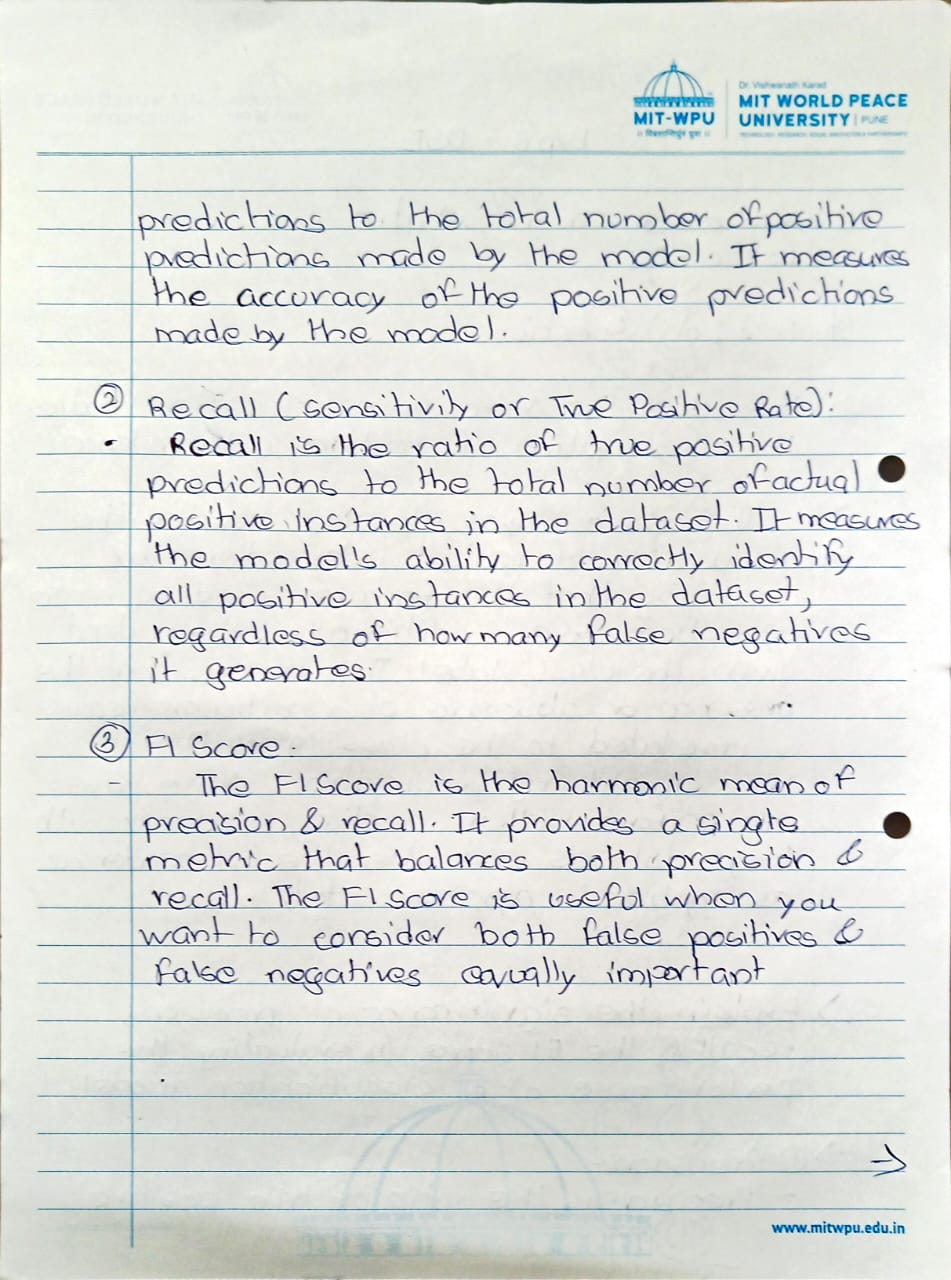 Dr. Vishwanath Karad
MIT WORLD PEACE
UNIVERSITY | PUNE
MIT-WPU
predictions to the total number of positive
predictions made by the model. It measures
the accuracy of the positive predictions
made by the model.
② Recall (sensitivity or True Positive Rate):
• Recall is the ratio of true positive
predictions to the total number of actual
positive instances in the dataset. It measures
the model's ability to correctly identify
all positive instances in the dataset,
regardless of how many false negatives
it generates.
③ F1 Score.
- The F1 Score is the harmonic mean of
precision & recall. It provides a single
metric that balances both precision &
recall. The F1 score is useful when you
want to consider both false positives &
false negatives equally important
→
www.mitwpu.edu.in